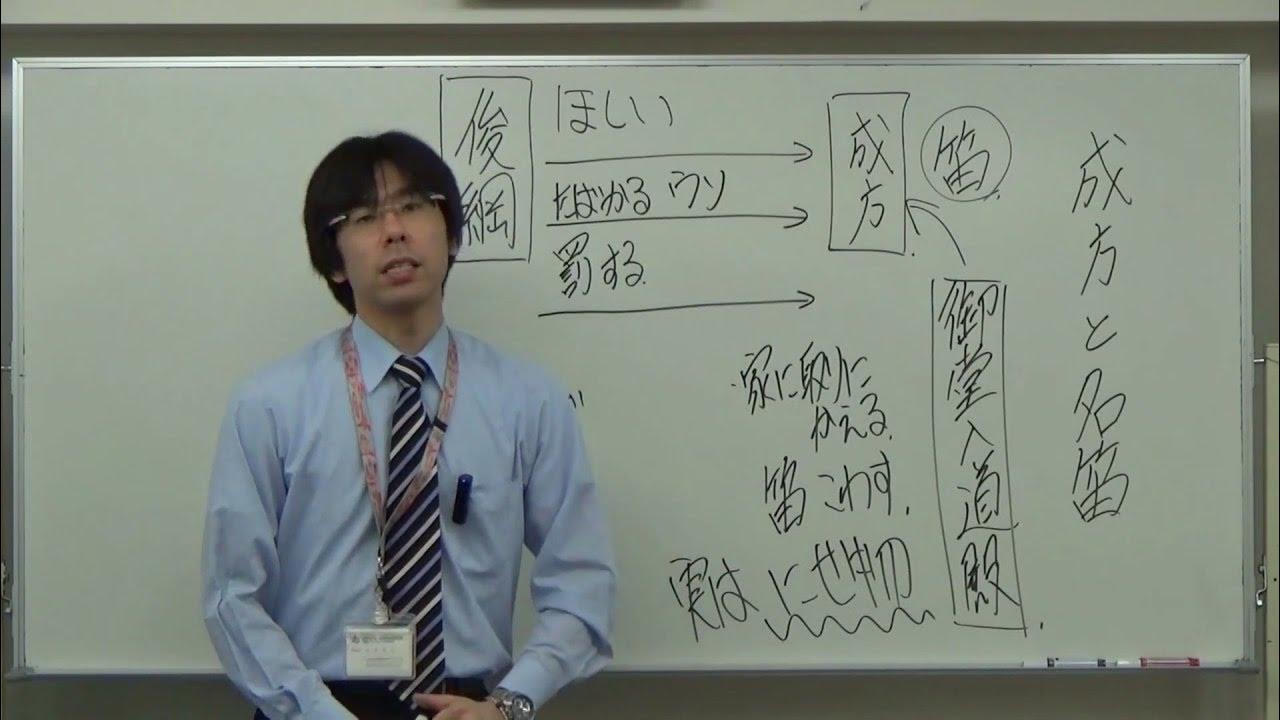 成方と名笛
笛
御堂入道殿
成方
俊綱
ほしい
たばかる ウソ
罰する
家に取りに
かえる
笛 こわす
実は にせ物